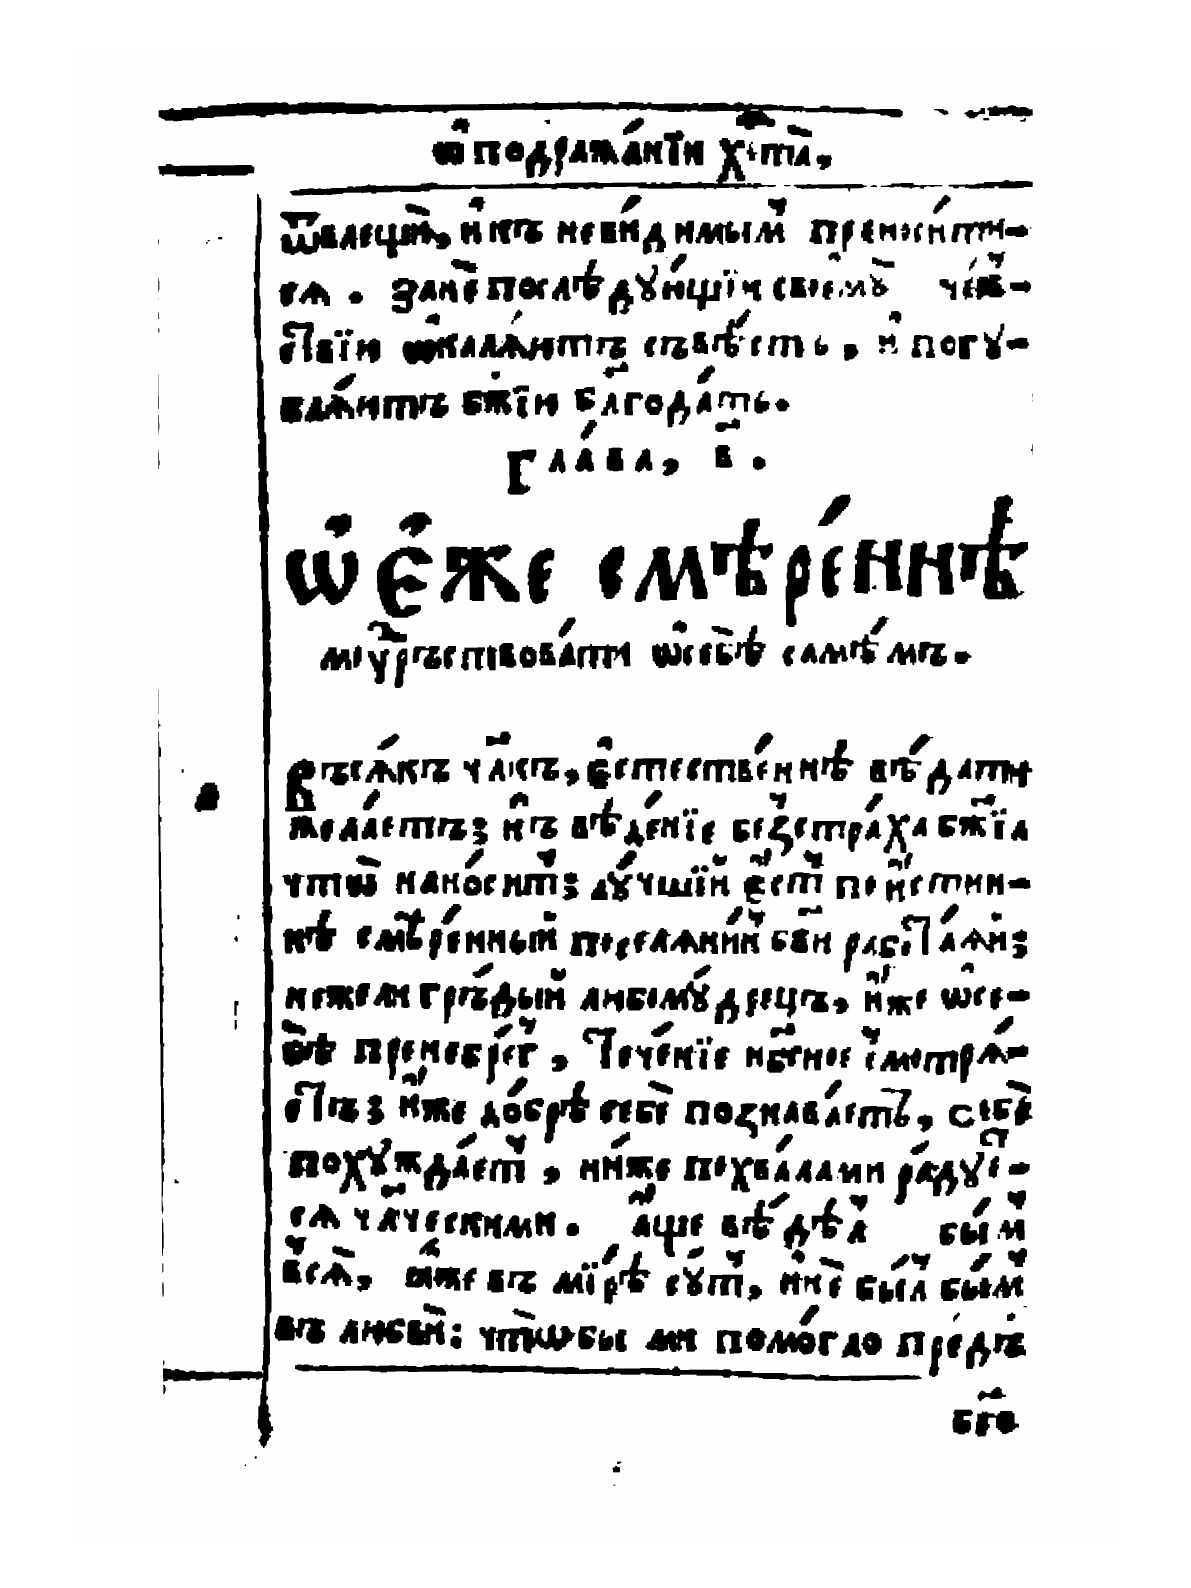 ѡ҆ подража́нїи хр҃та̀,
ѿвлещѝ, и҆ къ неви́димым̾ преноси́ти-
сѧ . Занѐ послѣ́дꙋющїи своемꙋ̀ чꙋ́в-
ствїю ѡ҆калѧ́ютъ съвѣ́сть, и҆ погꙋ-
влѧ́ютъ бж҃їю блг҃ода́ть.
Глава̀, в҃.
Ѡ҆ Е҆́же смѣре́ннѣ
мꙋдръствова́ти ѡ҆себѣ̀ самѣ́мъ.
Всѧ́къ чл҃къ, є҆стестве́ннѣ вѣ́дати
жела́етъ; и҆ въ вѣ́денїе без̾стра́ха бж҃їа
что̀ нано́сит̾; лꙋ́чшїй є҆́ст̾ пои҆́стин-
нѣ смѣре́нный поселѧ́нин̾ бг҃ꙋ рабо́таѧй;
нежели го́рдый любомꙋ́дрецъ, и҆́же ѡ҆се-
бѣ̀ пренебре́г̾, Тече́нїе нб҃сное смотрѧ́-
етъ; и҆́же до́брѣ себѐ познава́етъ, себѐ
похꙋжда́ет̾, ни́же похвалами ра́дꙋет-
сѧ чл҃ческими. а҆́ще вѣ́дѣл̾ бы́м̾
всѧ̑, ꙗ҆̀же въ мі́рѣ сꙋ́т̾, и҆ не бы́л̾ бы́м̾
въ любвѝ: что̀бы ми помо́гло предъ
бг҃о